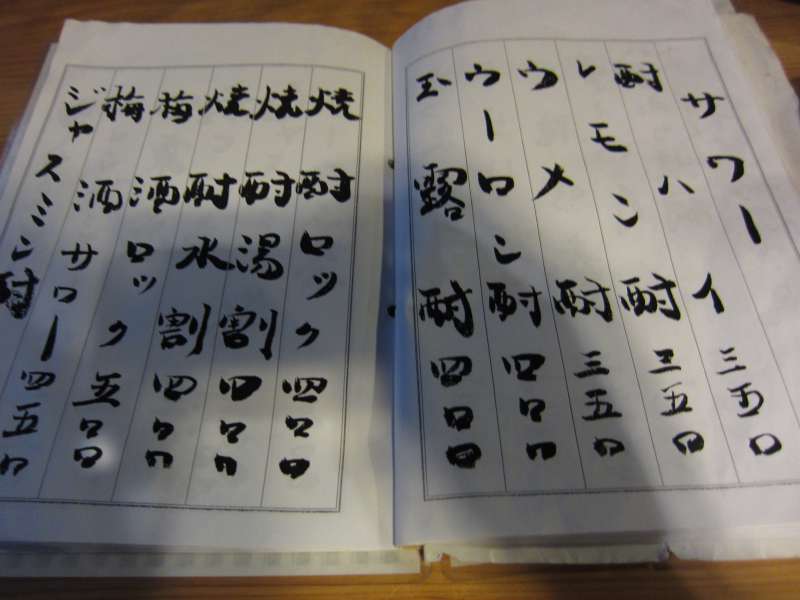 サワー
酎ハイ 三五〇
レモン酎 三五〇
ウメ酎 三五〇
ウーロン酎 四〇〇
玉露酎 四〇〇
焼酎ロック 四〇〇
焼酎湯割 四〇〇
焼酎水割 四〇〇
梅酒ロック 五〇〇
梅酒サワー 四五〇
ジャスミン酎